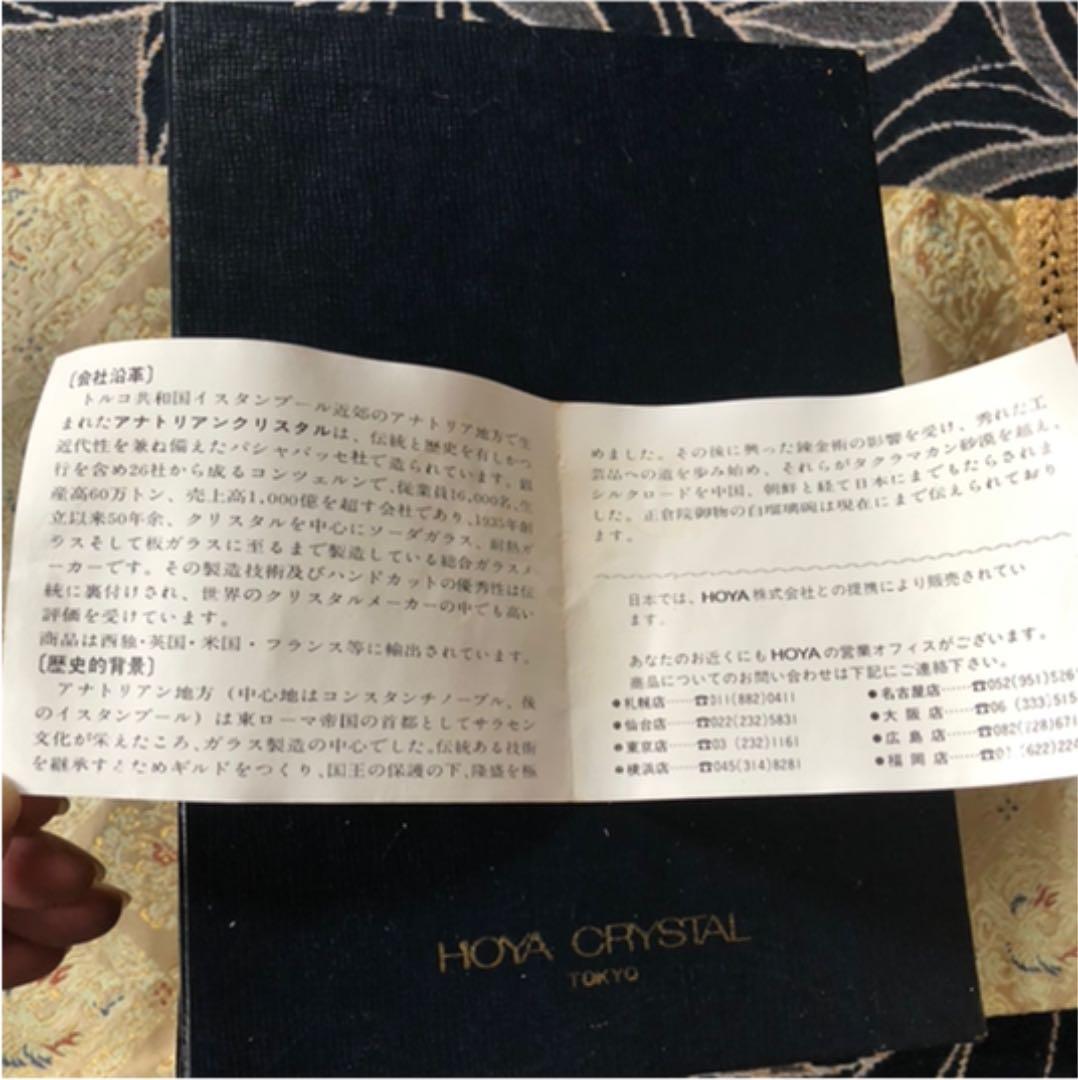 〔会社沿革〕
トルコ共和国イスタンブール近郊のアナトリア地方で生
まれたアナトリアンクリスタルは、伝統と歴史を有しかつ
近代性を兼ね備えたパシャバッセ社で造られています。銀
行を含め26社から成るコンツェルンで、従業員16,000名、生
産高60万トン、売上高1,000億を超す会社であり、1935年創
立以来50年余、クリスタルを中心にソーダガラス、耐熱ガ
ラスそして板ガラスに至るまで製造している総合ガラスメ
ーカーです。その製造技術及びハンドカットの優秀性は伝
統に裏付けされ、世界のクリスタルメーカーの中でも高い
評価を受けています。
商品は西独・英国・米国・フランス等に輸出されています。
〔歴史的背景〕
アナトリアン地方（中心地はコンスタンチノープル、後
のイスタンブール）は東ローマ帝国の首都としてサラセン
文化が栄えたころ、ガラス製造の中心でした。伝統ある技術
を継承すためギルドをつくり、国王の保護の下、隆盛を極
めました。その後に興った錬金術の影響を受け、秀れた工
芸品への道を歩み始め、それらがタクラマカン砂漠を越え、
シルクロードを中国、朝鮮と経て日本にまでもたらされま
した。正倉院御物の白瑠璃碗は現在にまで伝えられており
ます。
日本では、HOYA株式会社との提携により販売されてい
ます。
あなたのお近くにもHOYAの営業オフィスがございます。
商品についてのお問い合わせは下記にご連絡下さい。
●札幌店……☎011(882)0411
●仙台店……☎022(232)5831
●東京店……☎03 (232)1161
●横浜店……☎045(314)8281
●名古屋店……☎052(951)526
●大 阪 店……☎06 (333)515
●広 島 店……☎082(228)671
●福 岡 店……☎
HOYA CRYSTAL
TOKYO